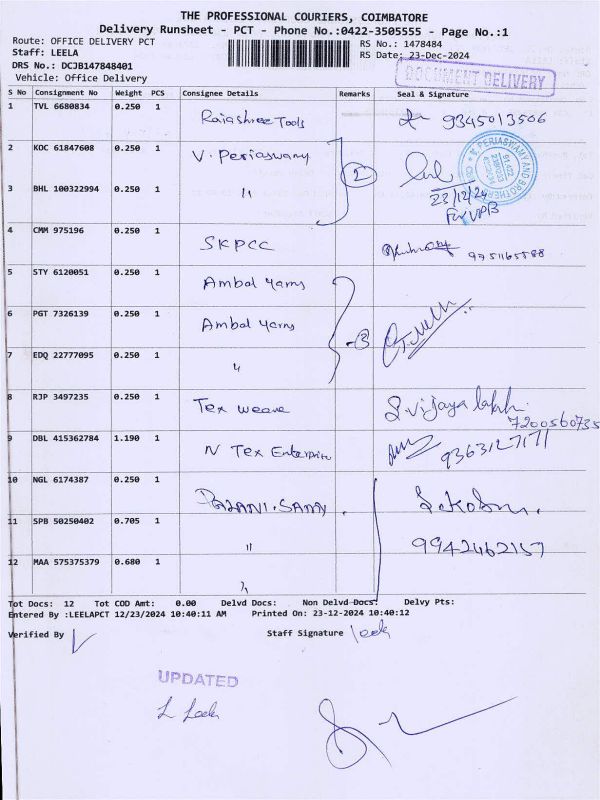 THE PROFESSIONAL COURIERS, COIMBATORE
Delivery Runsheet - PCT - Phone No.:0422-3505555 - Page No.:1
Route: OFFICE DELIVERY PCT
RS No.: 1478484
Staff: LEELA
RS Date: 23-Dec-2024
DRS No.: DCJB147848401
DOCUMENT DELIVERY
Vehicle: Office Delivery
S No Consignment No Weight PCS Consignee Details Remarks Seal & Signature
1 TVL 6680834 0.250 1 Rajashree Tools 9345013506
2 KOC 61847608 0.250 1 V. Periaswamy 2
3 BHL 100322994 0.250 1 "
23/12/24
For VPB
4 CMM 975196 0.250 1 SKPCC 9751165588
5 STY 6120051 0.250 1 Ambal yarns
6 PGT 7326139 0.250 1 Ambal yarns -3
7 EDQ 22777095 0.250 1 "
8 RJP 3497235 0.250 1 Tex weave S. vijaya lakshi
7200560735
9 DBL 415362784 1.190 1 N Tex Enterprise 9363127171
10 NGL 6174387 0.250 1 PAZANI.SAMY.
11 SPB 50250402 0.705 1 " 9942462157
12 MAA 575375379 0.680 1 "
Tot Docs: 12 Tot COD Amt: 0.00 Delvd Docs: Non Delvd Docs: Delvy Pts:
Entered By :LEELAPCT 12/23/2024 10:40:11 AM Printed On: 23-12-2024 10:40:12
Verified By
Staff Signature Leela
UPDATED
L. Leela